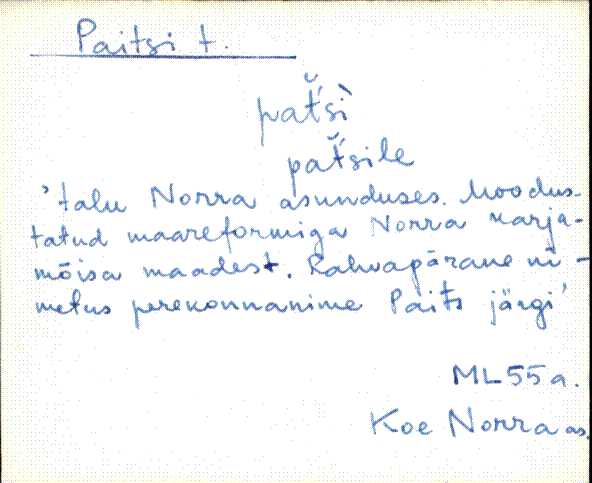 Paitsi t.
pat́̆śì
pat́̆śile
'talu Norra asunduses. Moodus-
tatud maareformiga Norra karja-
mõisa maadest. Rahvapärane ni-
metus perekonnanime Paits järgi'
ML 55 a.
Koe Norra as.